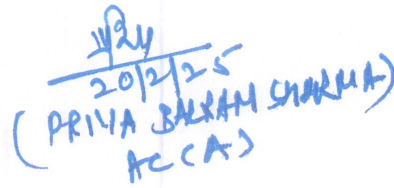 20/2/25
(PRIYA BALRAM SHARMA)
AC(A)